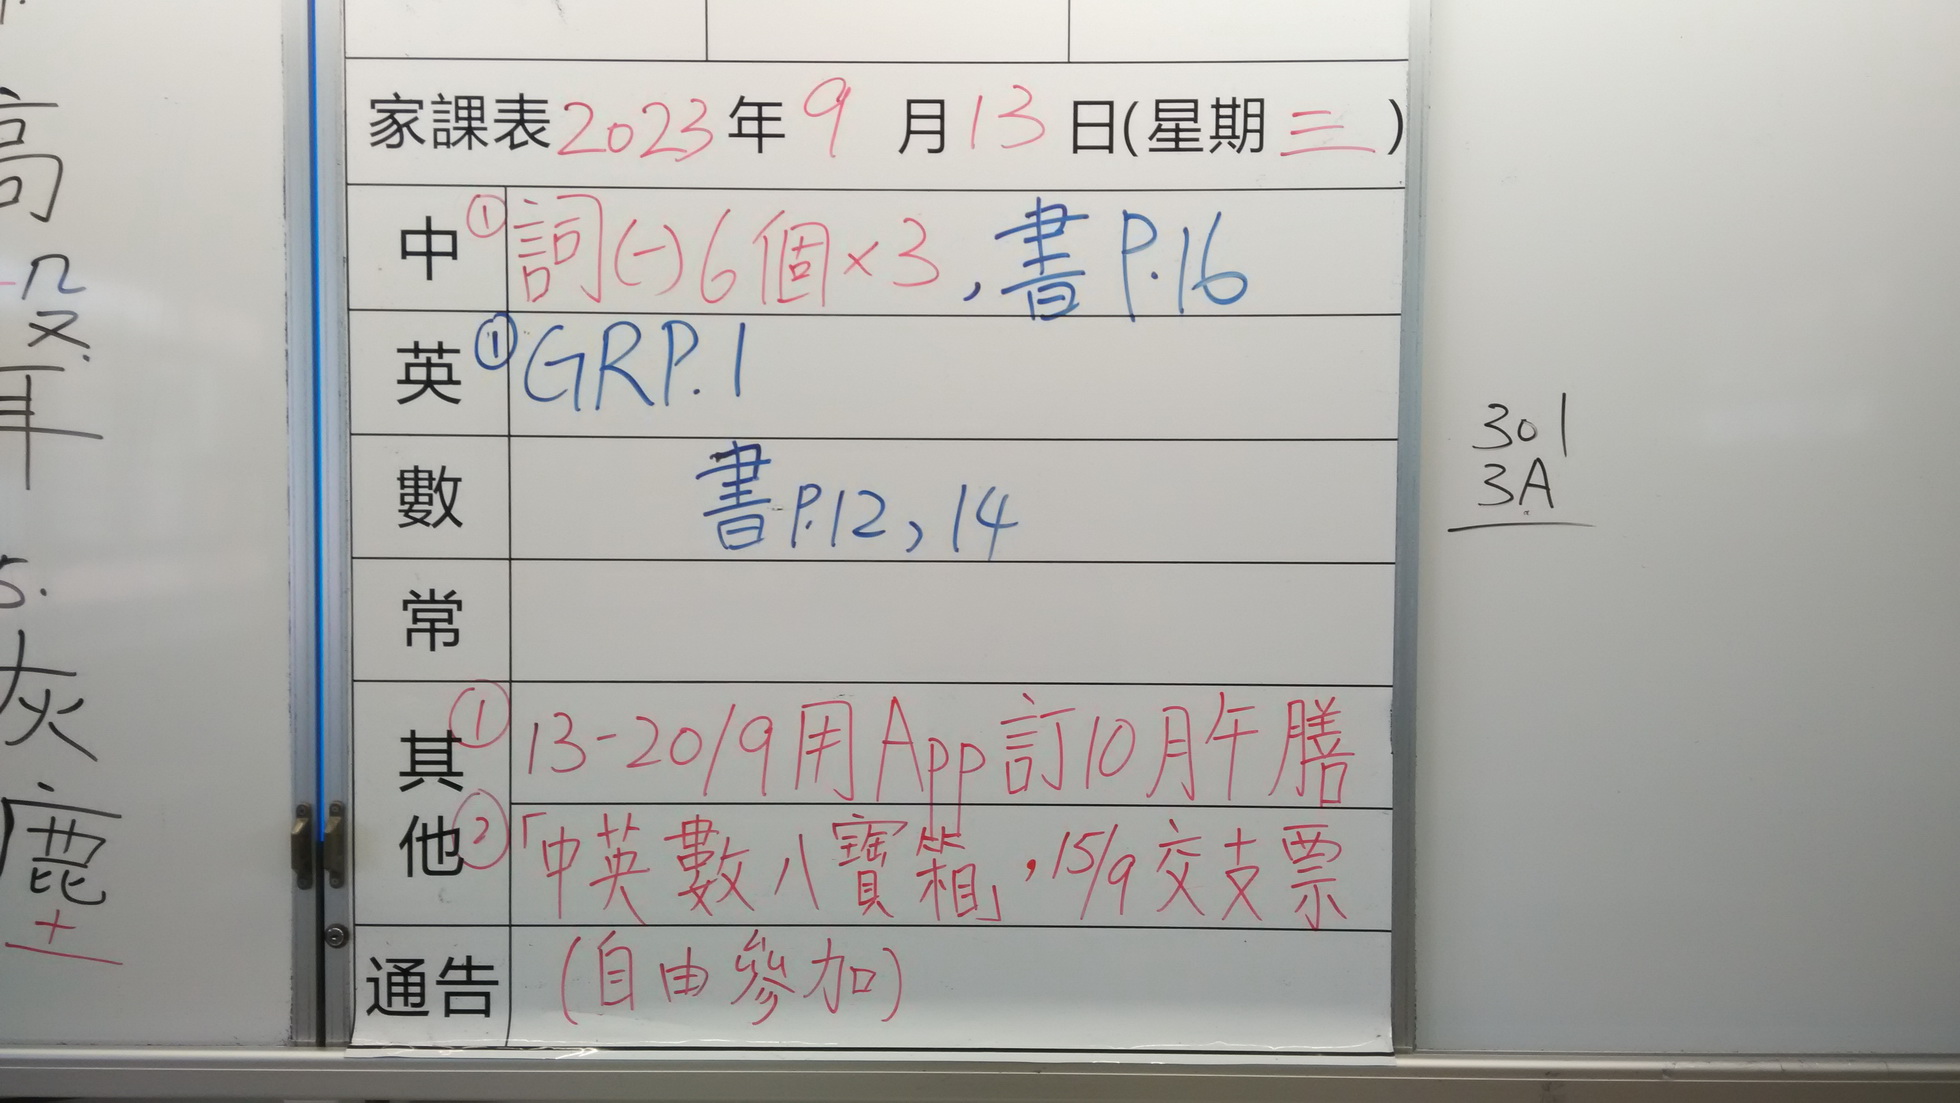 高
殳
耳
5.
灰
塵
家課表2023年9月13日(星期三)
中 ① 詞(一)6個×3,書P.16
英 ① GRP.1
數 書P.12,14
常
其他 ① 13-20/9用App訂10月午膳
② 「中英數八寶箱」,15/9交支票
通告 (自由參加)
301
3A